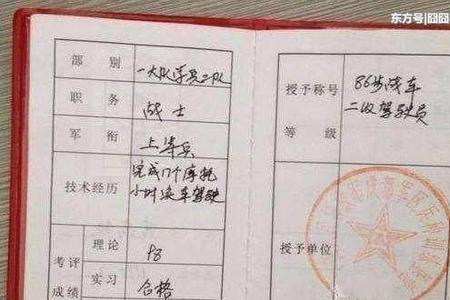 东方号|囧囧
部 别
一大队学兵二队
职 务
战士
军 衔
上等兵
技术经历
完成17个摩托
小时实车驾驶
考评
成绩
理论
98
实习
合格
授予称号
等 级
86步战车
二级驾驶员
授予单位